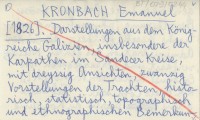 KRONBACH Emanuel
[1826]. Darstellungen aus dem König-
reiche Galizien, insbesondere der
Karpathen im Sandecer Kreise,
mit dreyssig Ansichten, zwanzig
Vorstellungen der Trachten, histo-
risch, statistisch, topographisch
und ethnographischen Bemerkun-